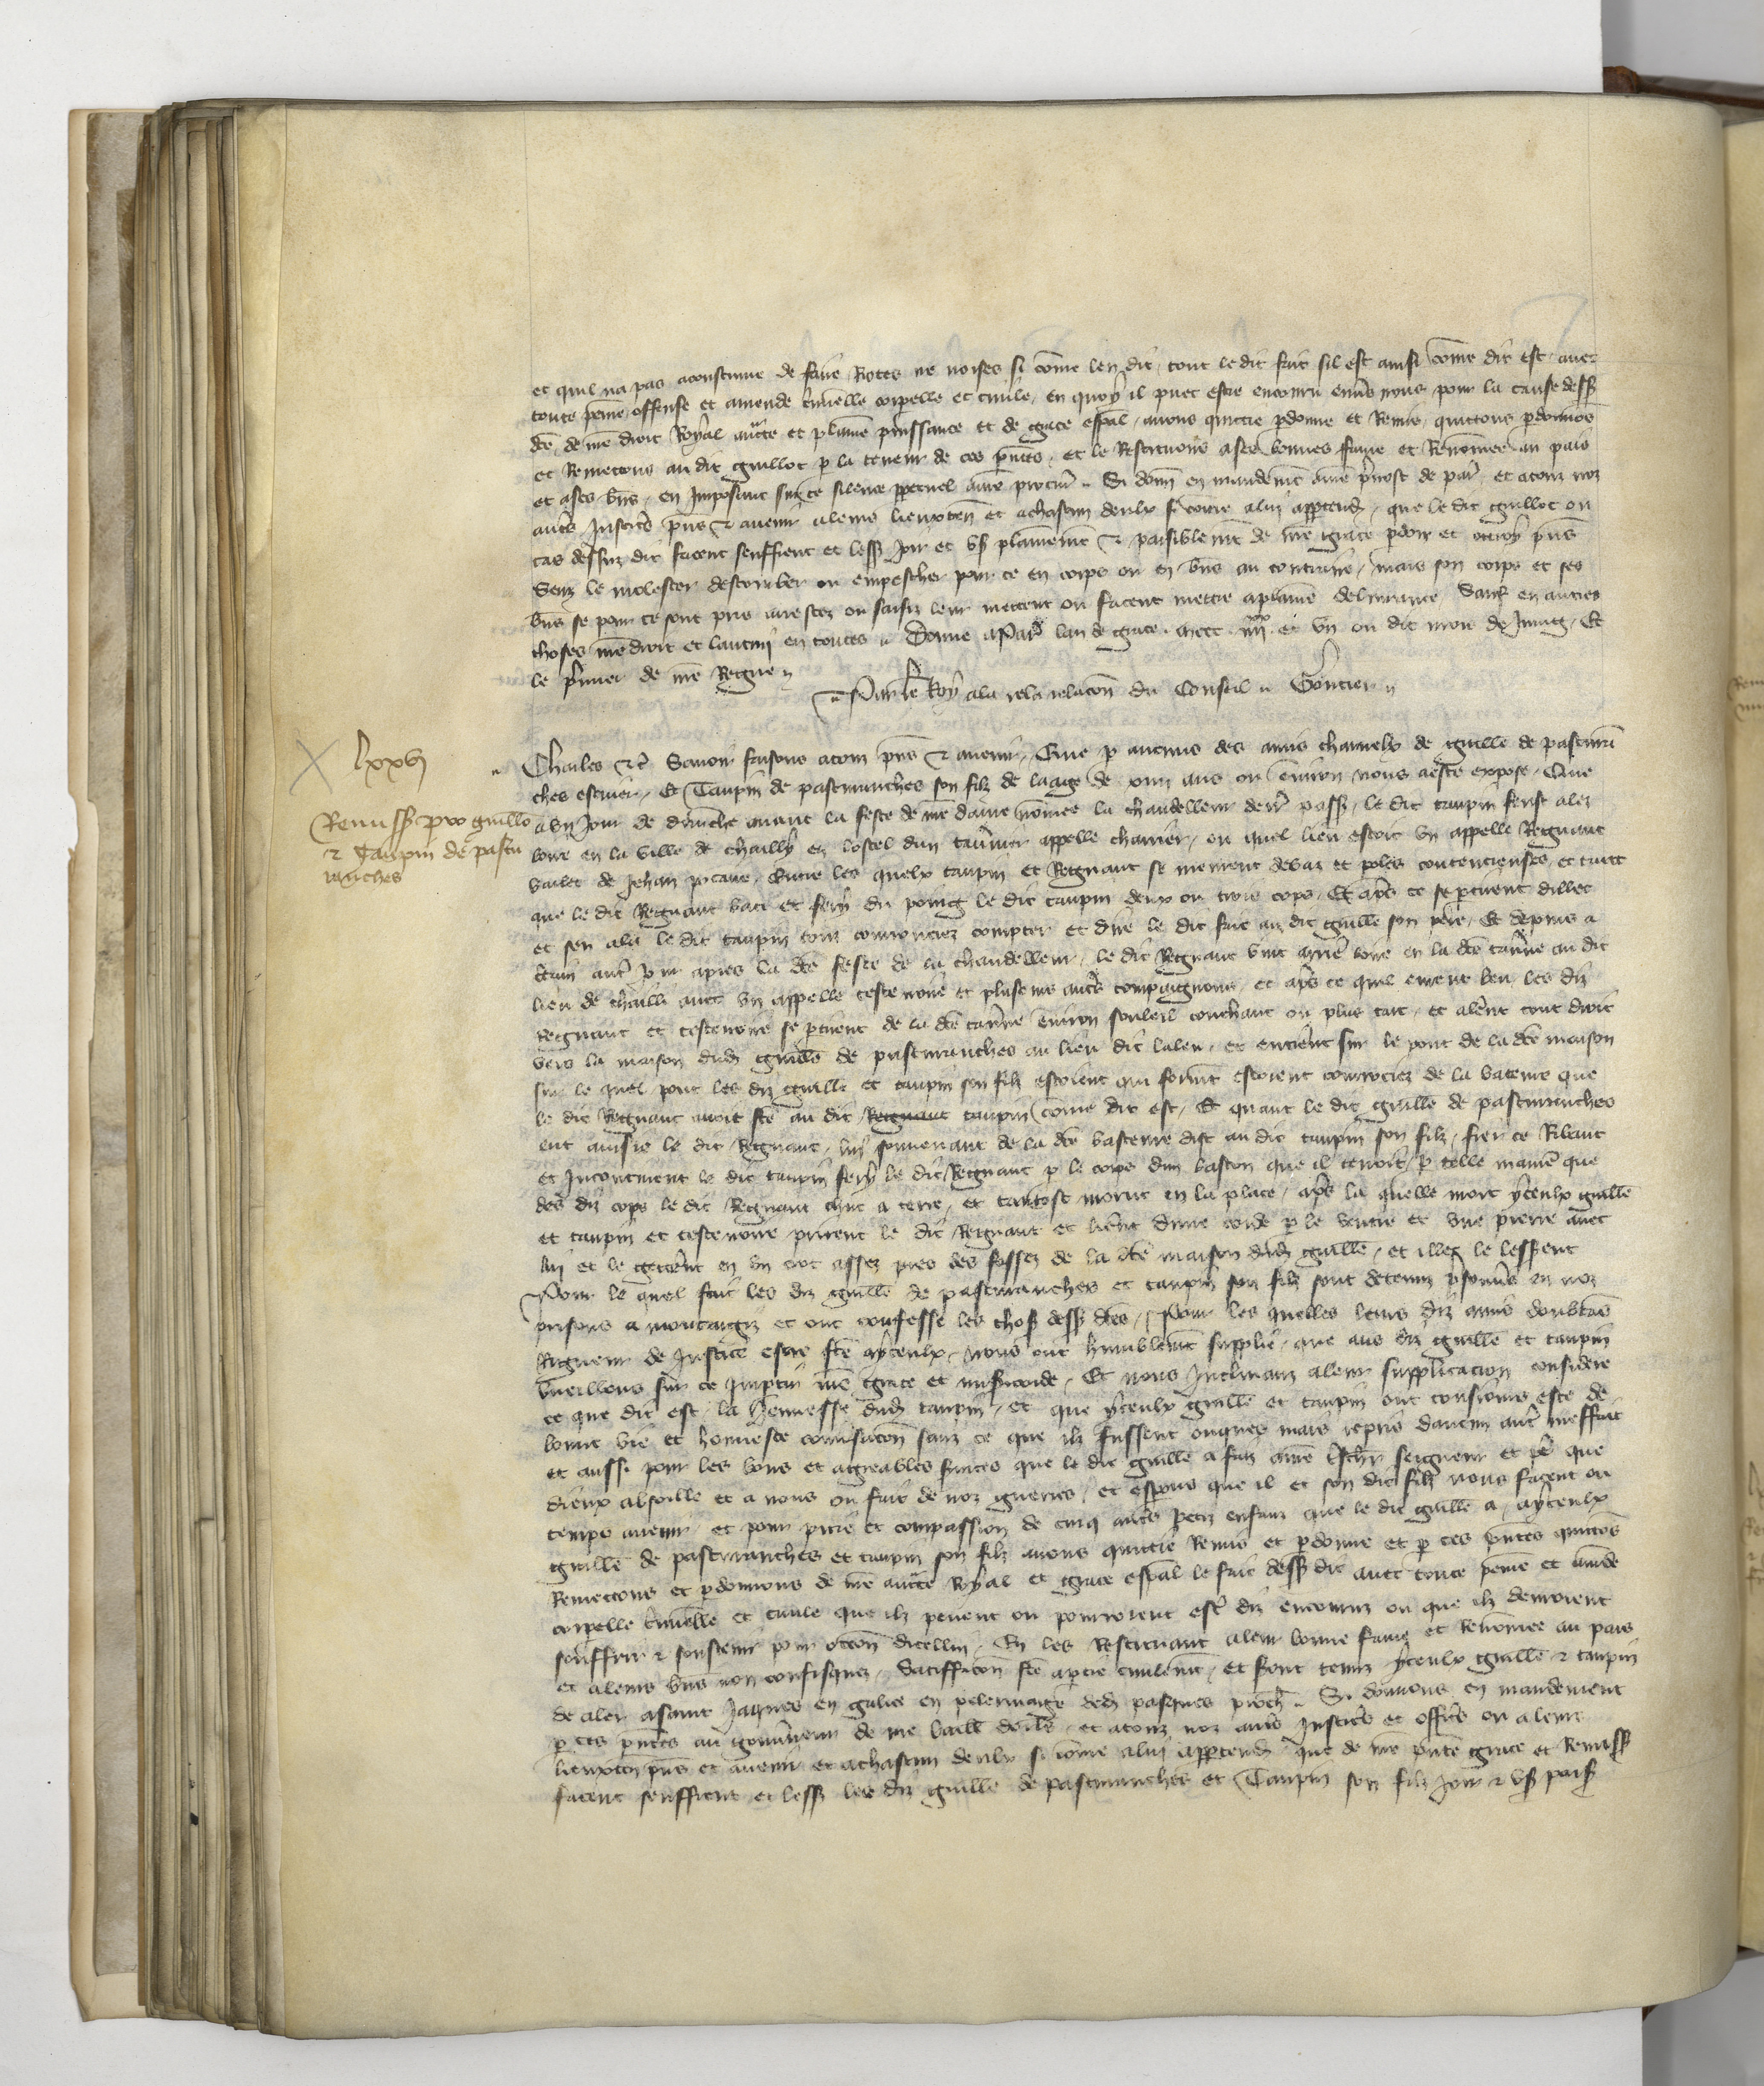 et quil na pas acoustume de faire Rotes ne noises si cōme len dit, tout le dit fait sil est ainsi cōme dit est, auec
toute peine offense et amende crīuelle corpelle et ciuile, en quoy il puet estre encouru enuˢ nous pour la cause dessꝰ
dc̄e, de nr̄e droit Royal auc̄te et plaine puissance et de grace esp̄al, auons quittie pdonne et Remis, quittons pdonnos
et Remettons au dit guillot p la teneur de ces pn̄tes, et le Restituons a ses bonnes fame et Renōmee au pais
et a ses bn̄s, en Imposant sur ce silence ppetuel a nr̄e procur̄. Si donn̄ en mandemēt a nr̄e p̄uost de par̄, et a touz noz
autˢ Justicˢ pn̄s ⁊ auenir a leurs lieuxten̄ et a chascun deulx si cōme a lui apptend̄, que le dit guillot ou
cas dessuz dit facent seuffrent et lessꝰ Joir et vsꝰ plainemēt ⁊ paisiblemēt de nr̄e grace pdon et ottroy pn̄s
Senz le molester destourber ou empescher pour ce en corps ou en bn̄s au contraire, mais son corps et ses
bn̄s se pour ce sont pris arrestez ou saisiz leur mettent ou facent mettre a plaine deliurance, Sauf en autres
choses nr̄e droit et lautrui en toutes. Donne a Par̄ lan de grace. mccc. iiiixx. et vn ou dit mois de Juing, Et
le p̄mier de nr̄e Regne
Par le Roy a la rela relacōn du Conseil. Gontier
lxxvj
Charles ⁊c̄ Sauoir faisons a touz pn̄s ⁊ auenir, Que p aucuns des amis charnelx de guill̄e de pasturan
Remissꝰ pro guillo
⁊ Taupin de pastu
ranches
ches escuier, Et Taupin de pasturanches son filz de laage de xiiii ans ou enuiron nous a este expose, Que
a vn Jour de dimēche auant la feste de nr̄e dame nōmee la chandelleur derr̄ passꝰ, le dit taupin feust alez
boire en la ville de chailly en lostel dun tau̓nier appelle charrier, ou quel lieu estoit vn appelle Regnaut
varlet de Jehan picaut, Entre les quelx taupin et Regnaut se meurent debaz et poles contencieuses, et tant
que le dit Regnaut bati et fery du poing le dit taupin deux ou trois cops, Et apˢ ce se ptirent dillec
et sen ala le dit taupin touz courrouciez compter et dire le dit fait au dit guill̄e son pere, Et depuis a
certain autˢ Jour apres la dc̄e feste de la chandelleur, le dit Regnaut vint boire en la dc̄e tau̓ne au dit
lieu de chailli auec vn appelle testenoire et plusieurs autˢ compaignons, et apˢ ce quil eurent beu les diz
Regnaut et testenoire se ptirent de la dc̄e tau̓ne enuiron souleil couchant ou plus tart, et alerēt tout droit
vers la maison dud̄ guill̄e de pasturanches au lieu dit laleu, et entrerēt sur le pont de la dc̄e maison
sur le quel pont les diz guill̄e et taupin son filz estoient qui formt̄ estoient courrociez de la bateure que
le dit Regnaut auoit fc̄e au dit Regnaut taupin cōme dit est, Et quant le dit guill̄e de pasturanches
ent auisie le dit Regnaut, lui souuenant de la dc̄e basteure dist au dit taupin son filz, fier ce Ribaut
et Incontinent le dit taupin fery le dit Regnaut p le corps dun baston que il tenoit, p telle manie̓ que
des diz cops le dit Regnaut chut a terre, et tantost morut en la place, apˢ la quelle mort yceulx guill̄e
et taupin et testenoire prirent le dit Regnaut et lierēt dune corde p le ventre et vne pierre auec
lui et le getterēt en vn assez pres des fossez de la dc̄e maison dud̄ guill̄e, et illec le lessꝰent
Pour le quel fait les diz guill̄e de pasturanches et taupin son filz sont detenuz p̄sonn̄s en noz
prisons a montargiz et ont confesse les choses dessꝰ dc̄es, Pour les quelles leurs diz amis doubtās
Rigueur de Justice estre fc̄e a yceulx, Nous ont humblemēt supplie, que aus diz guill̄e et taupin
vueillons sur ce Impartir nr̄e grace et mis̓icorde, Et nous Inclinanz a leur supplicacion considere
ce que dit est, la Jeunesse dud̄ taupin, et que yceulx guill̄e et taupin ont tousiours este de
bonne vie et honneste conu̓sacōn sanz ce que ilz fussent onques mais repris daucun autˢ meffait
et aussi pour les bons et agreables s̓uices que le dit guill̄e a faiz a nr̄e t̓schr̄ seigneur et pere que
dieux absoille et a nous ou fait de noz guerres, et esperons que il et son dit filz nous facent ou
temps auenir, et pour pitie et compassion de cinq autˢ petiz enfanz que le dit guill̄e a, a yceulx
guill̄e de pasturanches et taupin son filz auons quittie Remis et pdonne et p ces pn̄tes quittōs
Remettons et pdonnons de nr̄e auc̄te Royal et grace esp̄al le fait dessꝰ dit auec toute peine et am̄de
corpelle crīuelle et ciuile que ilz peuent ou pourroient estˢ diz encouruz ou que ilz deuroient
souffrir ⁊ soustenir pour occōn dicellui, En les Restituant a leur bonne fame et Renōmee au pais
et a leurs bn̄s non confisquez, Satiffac̄cōn fc̄e a ptie ciuilemēt, et s̓ont tenuz yceulx guill̄e ⁊ taupin
de aler a saint Jaques en galice en pelerinaige ded̄ pasques proch̄. Si donnons en mandement
p ces pn̄tes au gouu̓neur de nr̄e baill̄ dorl̄s, et a touz noz autˢ Justicˢ et officˢ ou a leurs
lieuxten̄ pn̄s et auenir et a chascun deulx si cōme a lui apptend̄, que de nr̄e pn̄te grace et Remissꝰ
facent seuffrent et lessꝰ les diz guill̄e de pasturanches et Taupin son filz Joir ⁊ vsꝰ paisꝰ